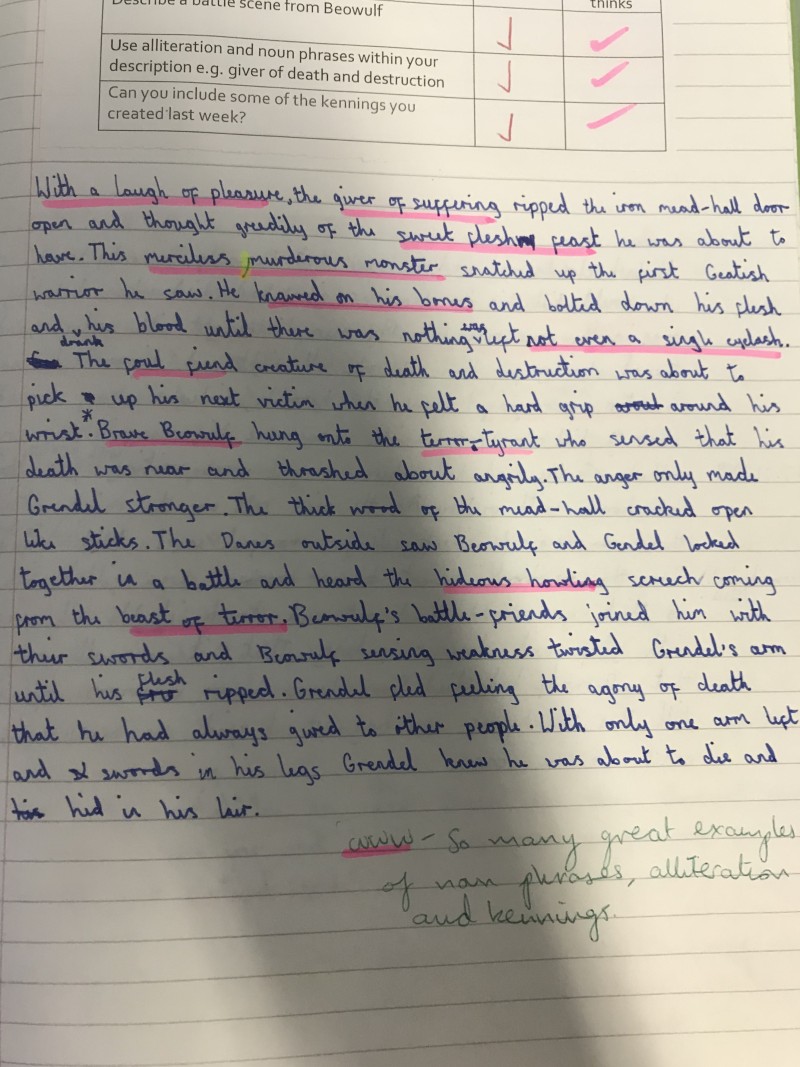 Describe a battle scene from Beowulf
thinks
Use alliteration and noun phrases within your
description e.g. giver of death and destruction
Can you include some of the kennings you
created last week?
With a laugh of pleasure, the giver of suffering ripped the iron mead-hall door
open and thought greedily of the sweet flesh feast he was about to
have. This merciless, murderous monster snatched up the first Geatish
warrior he saw. He knawed on his bones and bolted down his flesh
and drank his blood until there was nothing was left not even a single eyelash.
The foul fiend creature of death and destruction was about to
pick up his next victim when he felt a hard grip around his
wrist*. Brave Beowulf hung onto the terror-tyrant who sensed that his
death was near and thrashed about angrily. The anger only made
Grendel stronger. The thick wood of the mead-hall cracked open
like sticks. The Danes outside saw Beowulf and Gendel locked
together in a battle and heard the hideous howling screech coming
from the beast of terror. Beowulf's battle-friends joined him with
their swords and Beowulf sensing weakness twisted Grendel's arm
until his flesh ripped. Grendel fled feeling the agony of death
that he had always gived to other people. With only one arm left
and swords in his legs Grendel knew he was about to die and
hid in his lair.
WWW - So many great examples
of noun phrases, alliteration
and kennings.